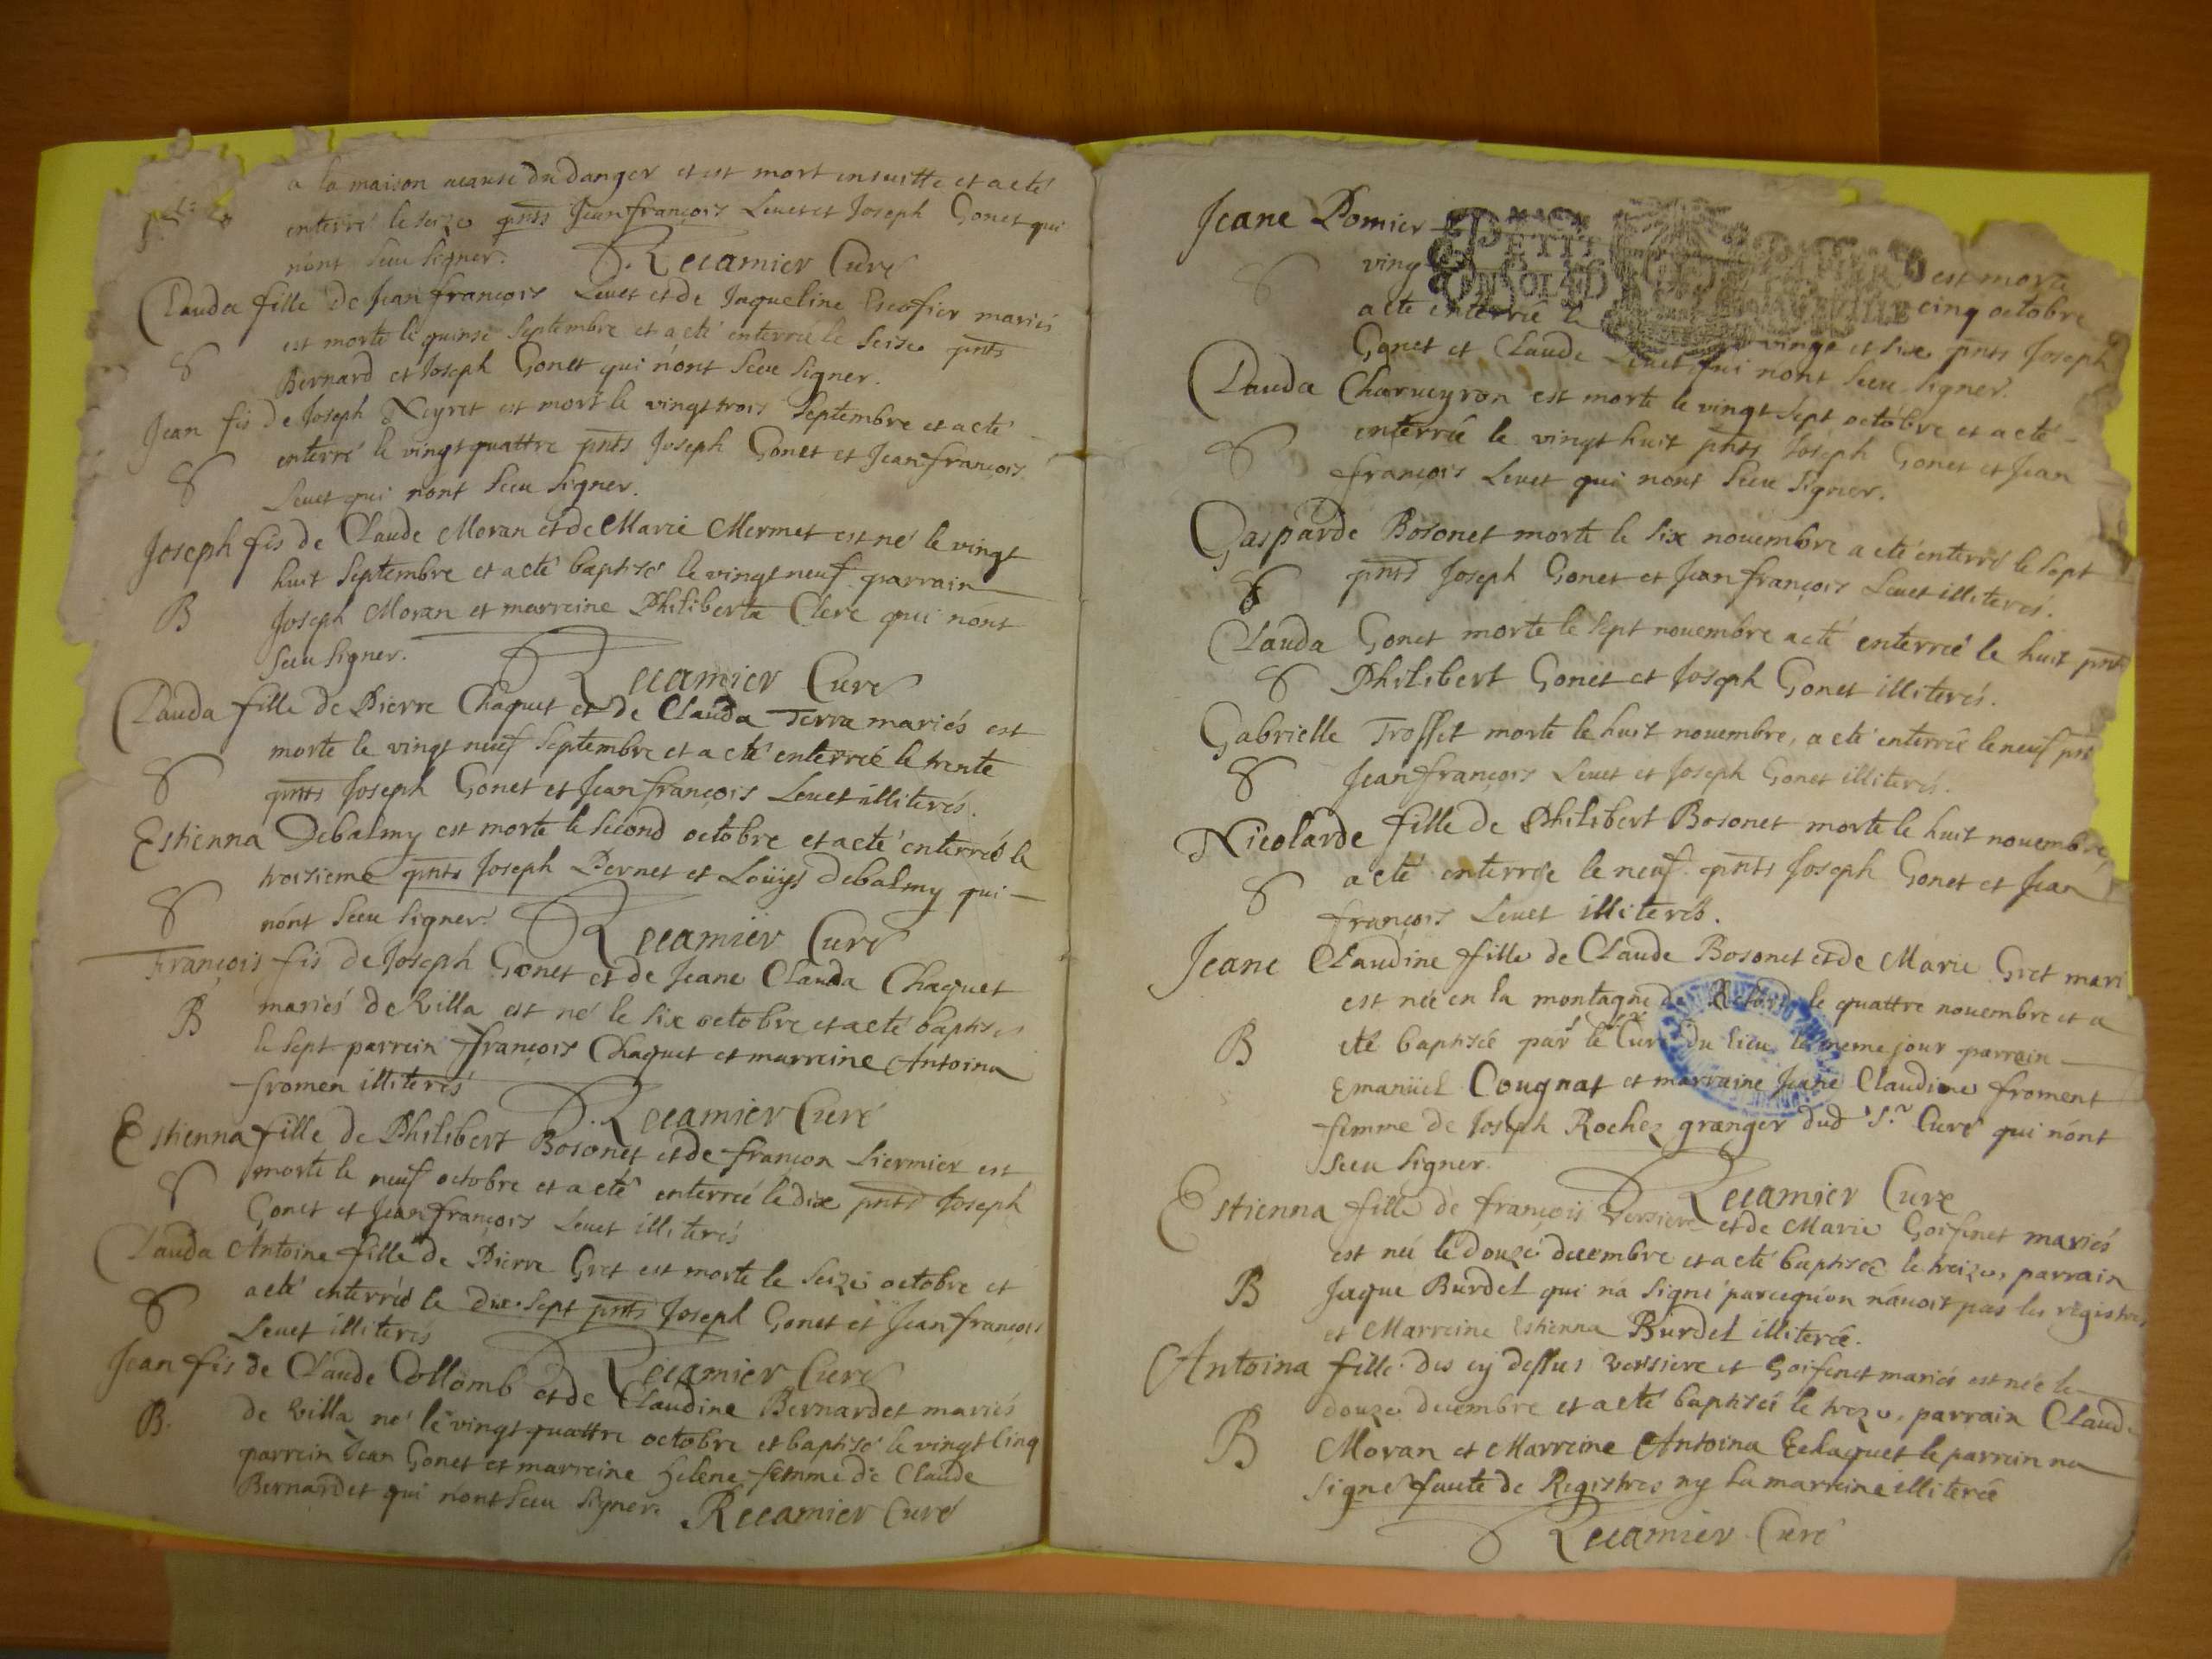 a la maison acause du danger et est mort ensuitte et a eté
enterré le seize pnts Jean françois Leuet et Joseph Gonet qui
nont seeu signer. Recamier Curé
Clauda fille de Jean françois Leuet et de Jaqueline Escoffier mariés
est morte le quinse septembre et a eté enterrée le seise pnts
Bernard et Joseph Gonet qui nont seeu signer.
Jean fis de Joseph Neyret est mort le vingt trois septembre et a eté
enterré le vingt quattre pnts Joseph Gonet et Jean françois
Leuet qui nont seeu signer.
Joseph fis de Claude Moran et de Marie Mermet est né le vingt
huit septembre et a eté baptisé le vingt neuf parrain
B Joseph Moran et marreine Philiberta Clerc qui nont
seeu signer. Recamier Curé
Clauda fille de Pierre Chaquet et de Clauda Terra mariés est
morte le vingt neuf septembre et a eté enterreé le trente
pnts Joseph Gonet et Jean françois Leuet illiterés.
Estienna Debalmy est morte le second octobre et a eté enterreé le
troisieme pnts Joseph Pernet et Loüys debalmy qui
nont seeu signer. Recamier Curé
François fis de Joseph Gonet et de Jeane Clauda Chaquet
B mariés de Villa est né le six octobre et a eté baptisé
le sept parrein françois Chaquet et marreine Antoina
fromen illiterés Recamier Curé
Estienna fille de Philibert Bosonet et de françon Liermier est
morte le neuf octobre et a eté enterreé le dix pnts Joseph
Gonet et Jean françois Leuet illiterés
Clauda Antoine fille de Pierre Gret est morte le seize octobre et
a eté enterreé le dix sept pnts Joseph Gonet et Jean françois
Leuet illiterés Recamier Curé
Jean fis de Claude Collomb et de Claudine Bernardet mariés
B. de Villa né le vingt quattre octobre et baptisé le vingt cinq
parrein Jean Gonet et marreine helene femme de Claude
Bernardet qui nont seeu signer. Recamier Curé
Jeane Pomier est morte
PETIT PAPIER
ving cinq octobre
a eté enterrée le vingt et six pnts Joseph
Gonet et Claude Leuet qui nont seeu signer.
Clauda Charueyron est morte le vingt sept octobre et a eté
enterreé le vingt huit pnts Joseph Gonet et Jean
françois Leuet qui nont seeu signer.
Gasparde Bosonet morte le six nouembre a eté enterré le sept
pnts Joseph Gonet et Jean françois Leuet illiterés.
Clauda Gonet morte le sept nouembre a eté enterreé le huit pnts
Philibert Gonet et Joseph Gonet illiterés.
Gabrielle Trosset morte le huit nouembre, a eté enterreé le neuf pnts
Jean françois Leuet et Joseph Gonet illiterés.
Nicolarde fille de Philibert Bosonet morte le huit nouembre,
a eté enterrée le neuf. pnts Joseph Gonet et Jean
françois Leuet illiterés.
Jeane Claudine fille de Claude Bosonet et de Marie Gret mari
est née en la montagne de Retord le quattre nouembre et a
B eté baptisée par le Curé du lieu le meme jour parrein
Emanüel Cougnat et marraine Jeane Claudine froment
femme de Joseph Rochez granger dud Sr. Curé qui nont
seeu signer. Recamier Curé
Estienna fille de françois Versiere et de Marie Goifinet mariés
est née le douze decembre et a eté baptisée le treize, parrain
B Jaque Burdet qui na signé parcequon nauoit pas les registres
et Marreine Estienna Burdet illiterée.
Antoina fille des cy dessus Versiere et Goifinet mariés est née le
douze decembre et a eté baptisée le treze. parrain Claude
B Moran et Marreine Antoina Echaquet le parrein na
signé faute de Registres ny la marreine illiterée
Recamier Curé